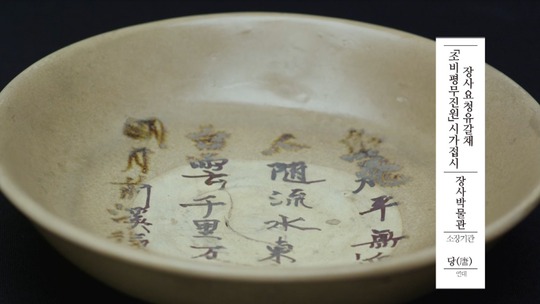 장사요 청유갈채
「조비평무진원」 시가접시
장사박물관
소장기관
당(唐)
연대
平無
人隨流水東
白雲千里万
明月前溪後